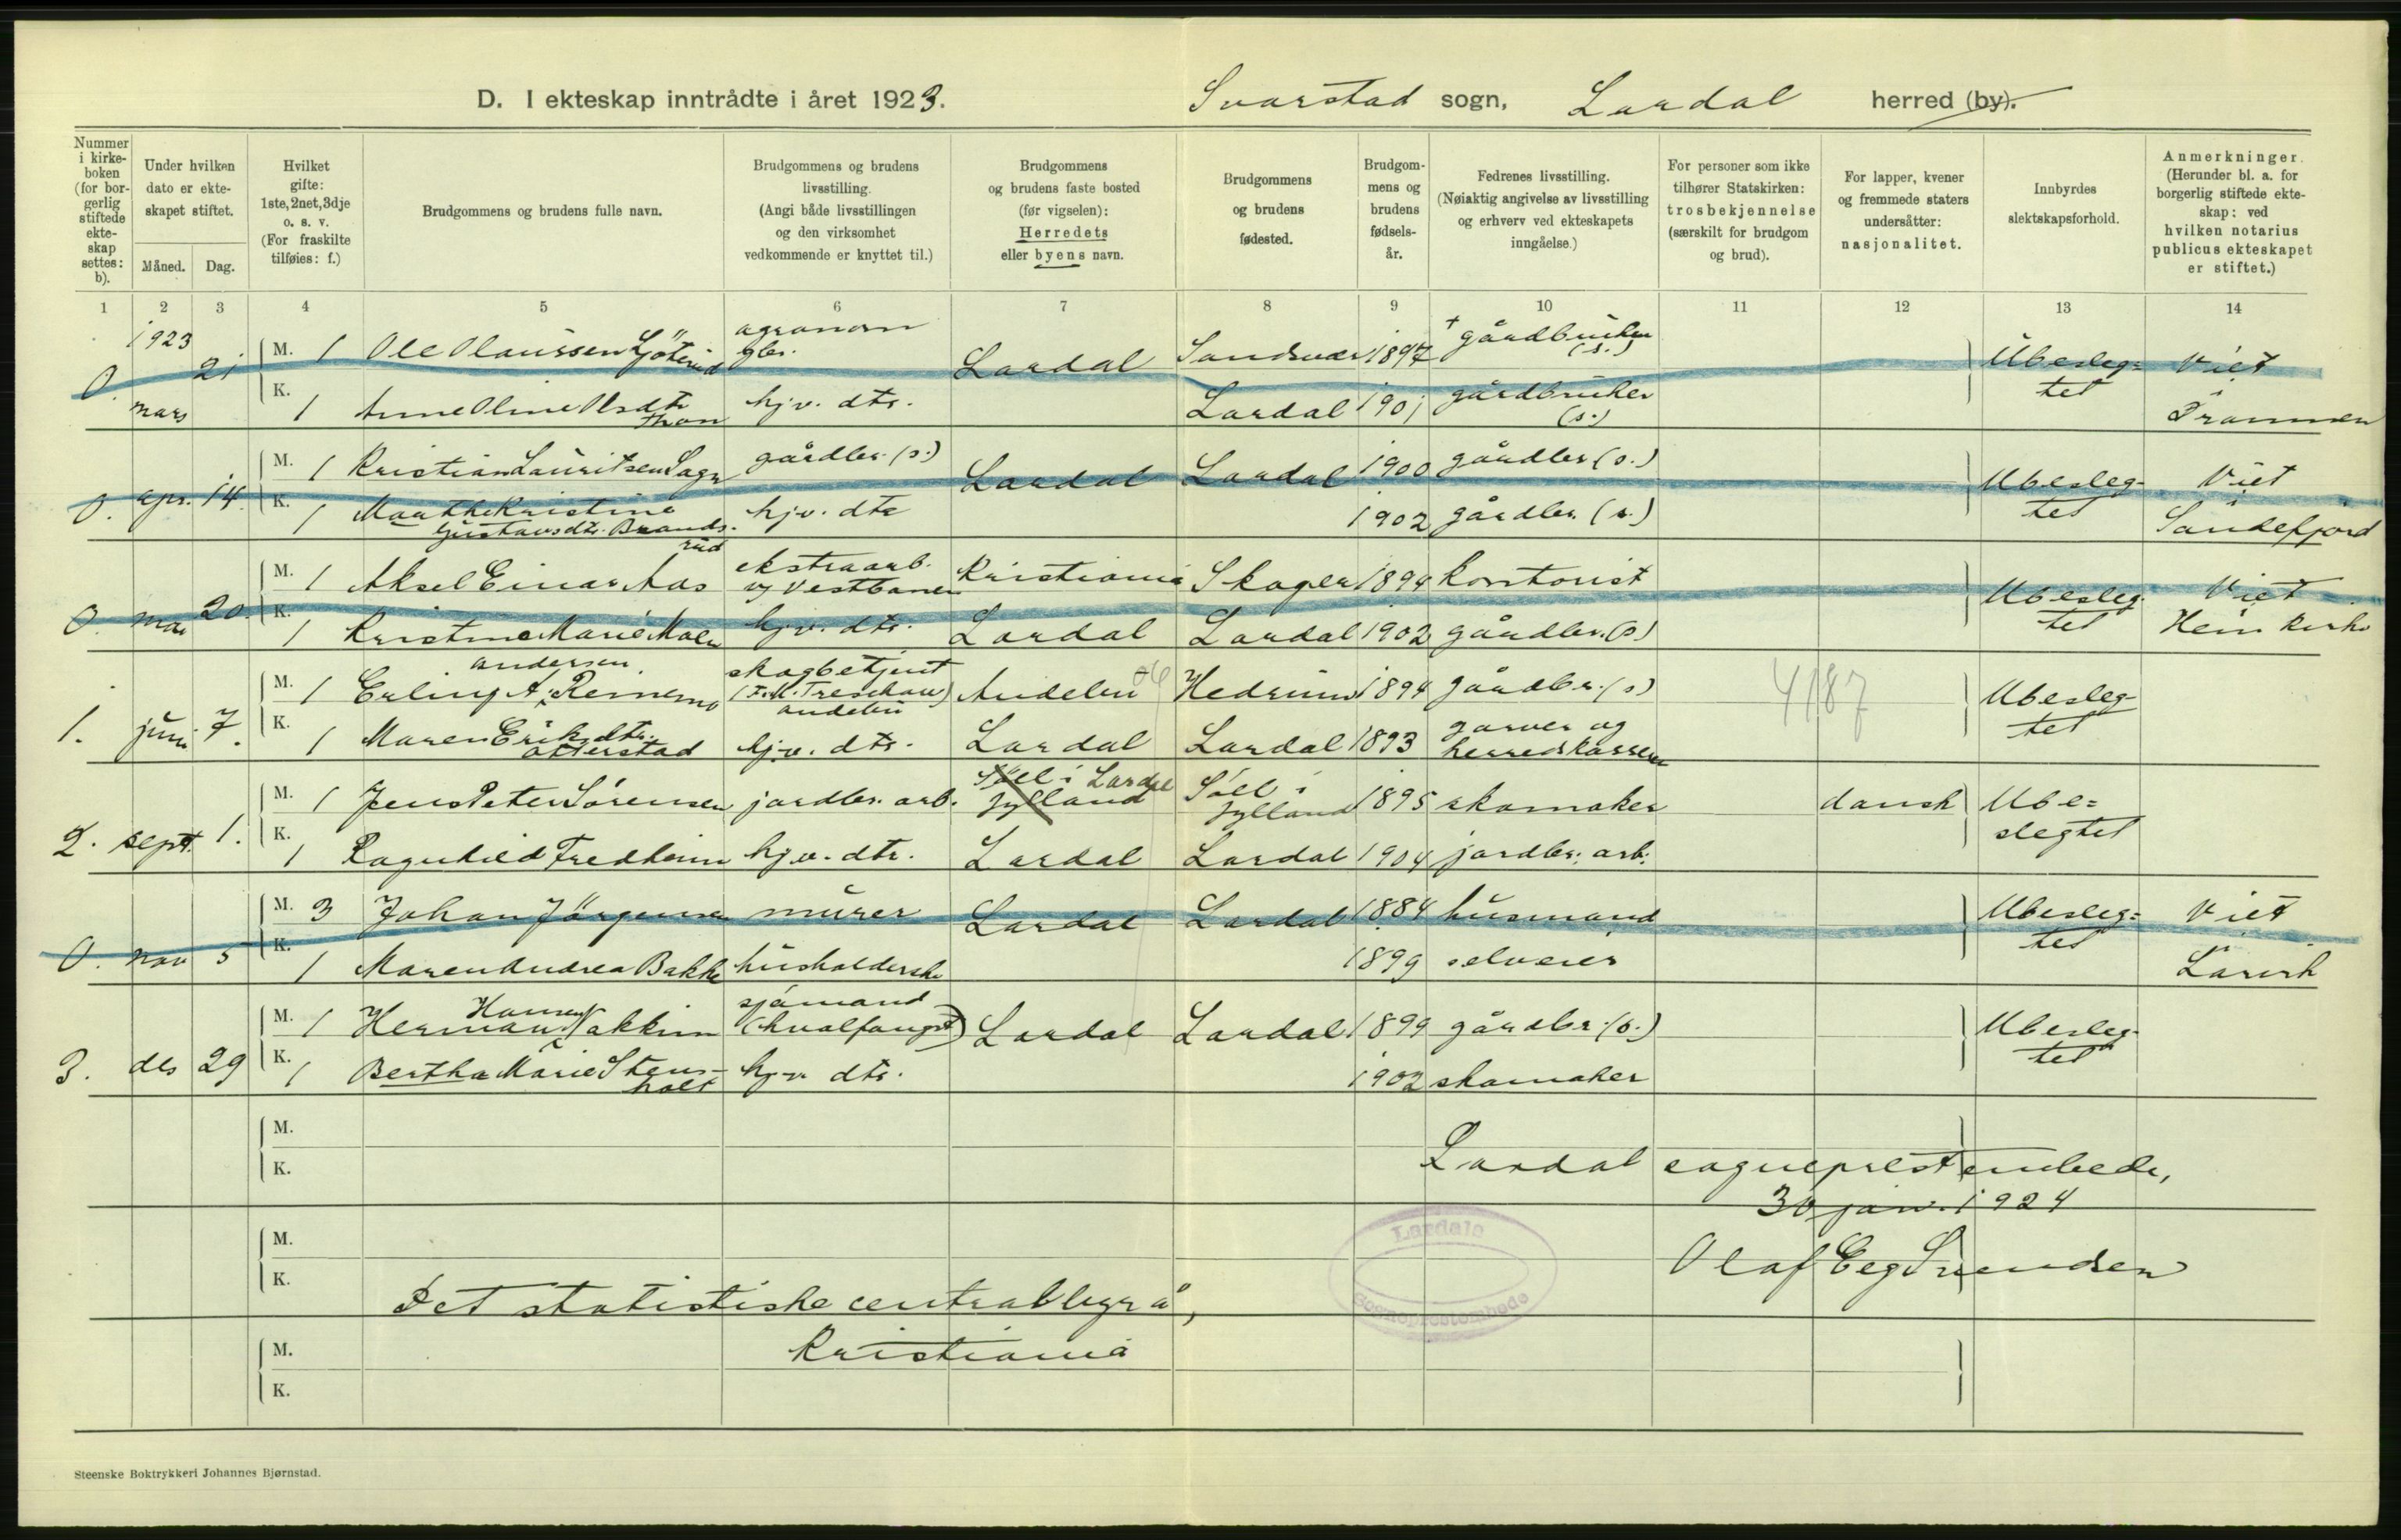 D. I ekteskap inntrådte i året 1923.
Svarstad sogn, Lardal herred (by).
Nummer i kirkeboken (for borgerlig stiftede ekteskap settes: b).
Under hvilken dato er ekteskapet stiftet.
Måned. Dag.
Hvilket gifte: 1ste, 2net, 3dje o. s. v. (For fraskilte tilføies: f.)
Brudgommens og brudens fulle navn.
Brudgommens og brudens livsstilling. (Angi både livsstillingen og den virksomhet vedkommende er knyttet til.)
Brudgommens og brudens faste bosted (før vigselen): Herredets eller byens navn.
Brudgommens og brudens fødested.
Brudgommens og brudens fødselsår.
Fedrenes livsstilling. (Nøiaktig angivelse av livsstilling og erhverv ved ekteskapets inngåelse.)
For personer som ikke tilhører Statskirken: trosbekjennelse (særskilt for brudgom og brud).
For lapper, kvener og fremmede staters undersåtter: nasjonalitet.
Innbyrdes slektskapsforhold.
Anmerkninger. (Herunder bl. a. for borgerlig stiftede ekteskap: ved hvilken notarius publicus ekteskapet er stiftet.)
1 2 3 4 5 6 7 8 9 10 11 12 13 14
1923
0. mars 21
M. 1 Ole Olaussen agronom gbr. Lardal Sandsvær 1897 + gårdbruker (s.) Ubeslegtet Viet
K. 1 Anne Oline Olsdtr Thon hjv. dtr. Lardal 1901 gårdbruker (s.) Drammen
0. apr. 14
M. 1 Kristian Lauritsen gårdbr. (s.) Lardal Lardal 1900 gårdbr (s.) Ubeslegtet Viet
K. 1 Marthe Kristine Gustavsdtr. Brandsrud hjv. dtr 1902 gårdbr. (s.) Sandefjord
0. mai 20.
M. 1 Aksel Einar Aas ekstraarb. v/ Vestbanen Kristiania Skoger 1894 kontorist Ubeslegtet Viet
K. 1 Kristine Marie Moen hjv. dtr. Lardal Lardal 1902 gårdbr. (s.) Hem kirke
1. juni 7.
M. 1 Erling A. Andersen skogbetjent (F. M. Treschow) Andebu Andebu Hedrum 1894 gårdbr. (s) 4187 Ubeslegtet
K. 1 Maren Eriksdtr. Otterstad hjv. dtr. Lardal Lardal 1893 garver og
2. sept. 1.
M. 1 Jens Peter Sörensen jordbr. arb. Jylland Lardal Jylland 1895 skomaker dansk Ubeslegtet
K. 1 Ragnhild Fredheim hjv. dtr. Lardal Lardal 1904 jordbr. arb.
0. nov 5
M. 3 Johan Jörgensen murer Lardal Lardal 1884 husmand Ubeslegtet Viet
K. 1 Maren Andrea Bakke husholderske 1899 selveier Larvik
3. des 29
M. 1 Herman Hansen sjömand (hvalfangst) Lardal Lardal 1899 gårdbr. (s.) Ubeslegtet
K. 1 Bertha Marie Stensholt hjv dtr. 1902 skomaker
M.
K.
Lardal sogneprestembede,
30 jan. 1924
M.
K.
Olaf Eeg Svendsen
Lardals Sogneprestembede
Det statistiske centralbyrå,
M.
Kristiania
K.
Steenske Boktrykkeri Johannes Bjørnstad.